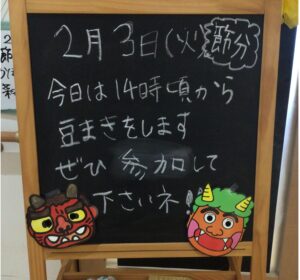 2月3日(火)節分
今日は14時頃から
豆まきをします
ぜひ 参加して
下さいネ!